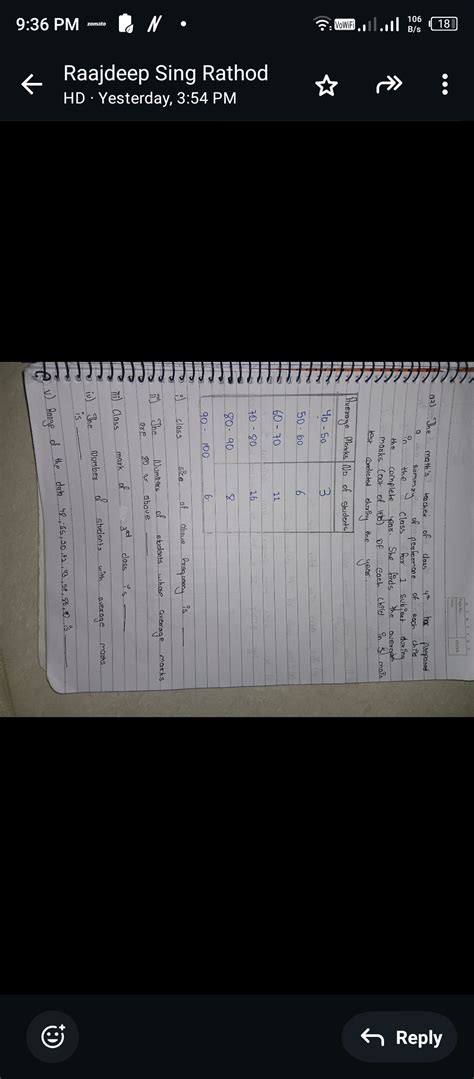 9:36 PM zomato N • VoWiFi 106 B/s 18
Raajdeep Sing Rathod
HD · Yesterday, 3:54 PM
The math's teacher of class 4th has prepared
a summary of performance of each child
in the class for 1 subject during
the complete year. She finds the average
marks (out of 100) of each child in 51 main
test conducted during the year.
Average Marks No of students
40 - 50 3
50 - 60 6
60 - 70 11
70 - 80 16
80 - 90 8
90 - 100 6
i) class size of above frequency is
ii) The Number of students whose average marks
are 80 or above
iii) Class mark of 3rd class is
iv) The Number of students with average marks
is
v) Range of the data 48, 65, 30, 72, is
Reply